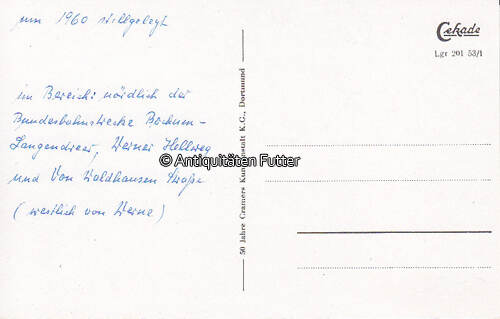 um 1960 stillgelegt
im Bereich: nördlich der
Bundesbahnstrecke Bochum-
Langendreer, Werner Hellweg
und Von Waldhausen Straße
(westlich von Werne)
© Antiquitäten Futter
50 Jahre Cramers Kunstanstalt K.G., Dortmund
Cekade
Lgr 201 53/1